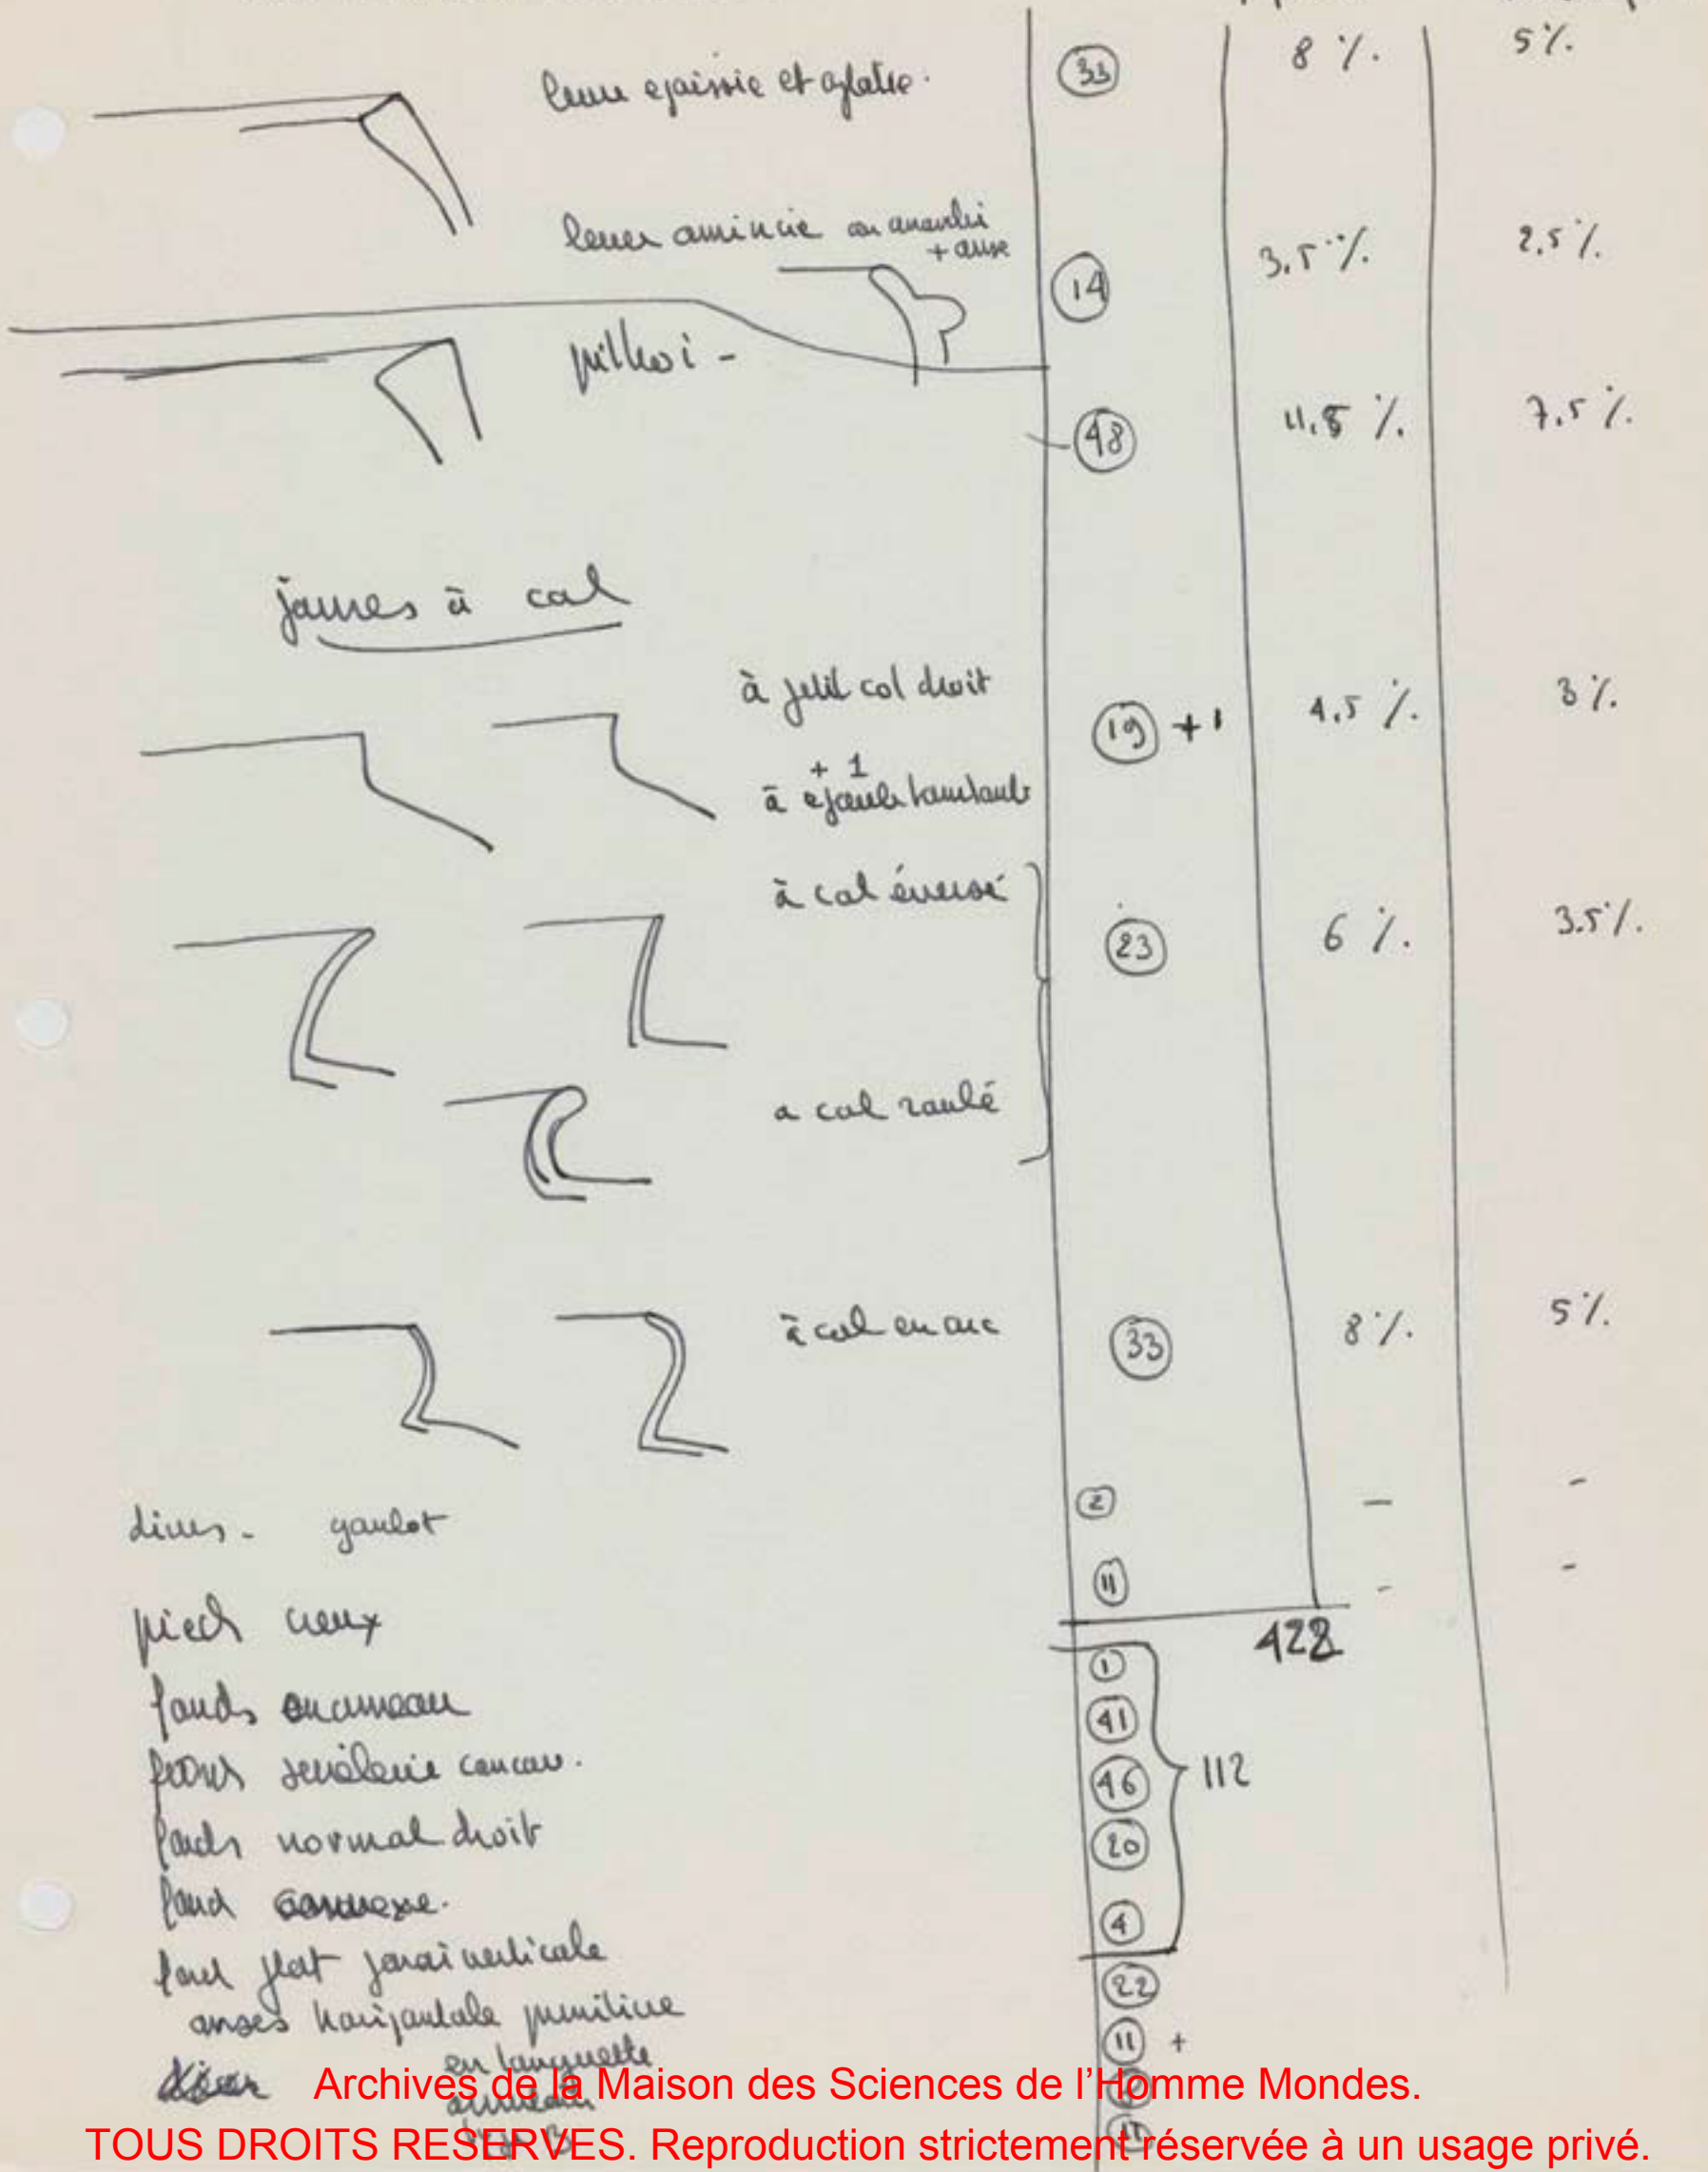 lèvre épaissie et aplatie. 33 8 % 5 %
lèvre amincie ou arrondie 14 3.5 % 2.5 %
+ anse
pithoi - 48 11.5 % 7.5 %
jarres à col
à petit col droit 19 + 1 4.5 % 3 %
+ 1
à épaule tombante
à col éversé 23 6 % 3.5 %
à col roulé
à col en arc 33 8 % 5 %
divers - goulot 2 - -
11 - -
pieds creux 422
fonds en anneau 1
41
46 112
fonds normal droit 20
fond convexe. 4
fond plat paroi verticale 22
anses horizontale primitive 11 +
en languette
anneau
Archives de la Maison des Sciences de l'Homme Mondes.
TOUS DROITS RESERVES. Reproduction strictement réservée à un usage privé.